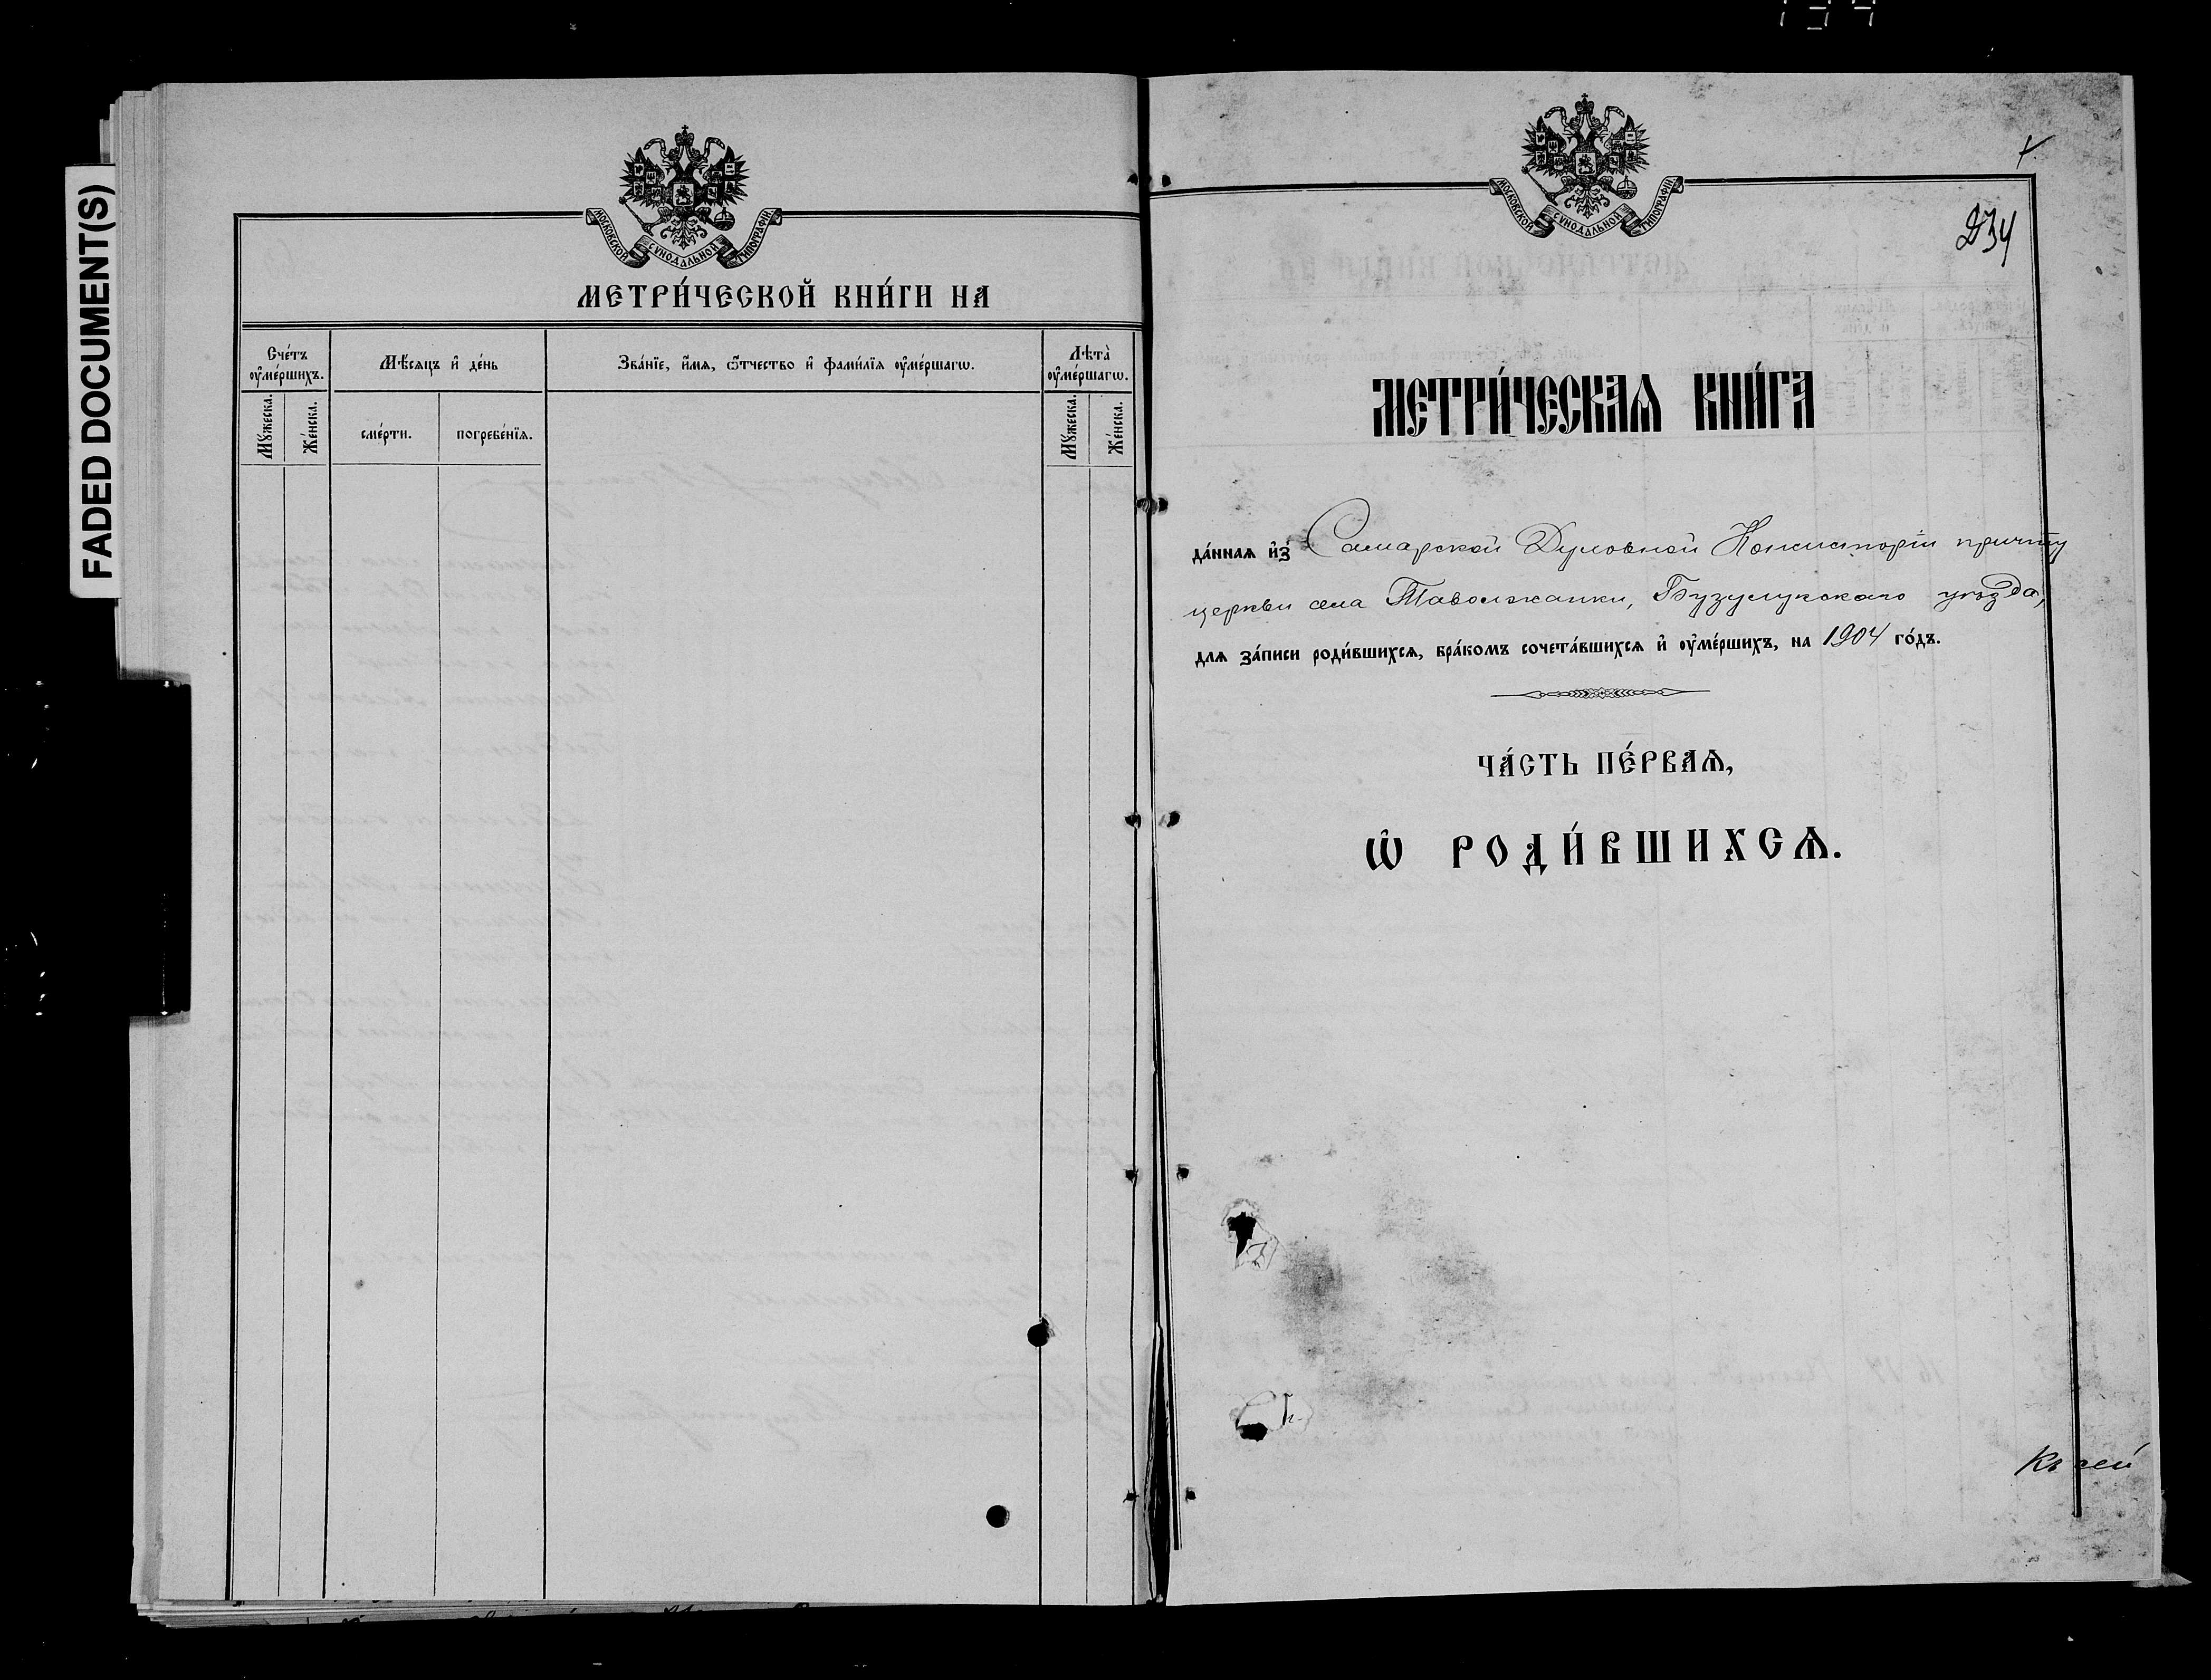 FADED DOCUMENT(S)
МОСКОВСКОЙ СѴНОДАЛЬНОЙ ТИПОГРАФІИ
МЕТРИ́ЧЕСКОЙ КНИ́ГИ НА
Сче́тъ оу҆ме́ршихъ.
Мѣ́сяцъ и҆ де́нь
Зва́нїе, и҆́мя, ѻ҆́тчество и҆ фами́лїя оу҆ме́ршагѡ.
Лѣта̀ оу҆ме́ршагѡ.
Мꙋ́жеска.
Же́нска.
сме́рти.
погребе́нїя.
Мꙋ́жеска.
Же́нска.
МОСКОВСКОЙ СѴНОДАЛЬНОЙ ТИПОГРАФІИ
234
МЕТРИ́ЧЕСКАѦ КНИ́ГА
да́нная и҆з̾ Самарской Духовной Консисторіи причту
церкви села Таволжанки, Бузулукскаго уѣзда,
для за́писи роди́вшихсѧ, бра́комъ сочета́вшихсѧ и҆ оу҆ме́ршихъ, на 1904 го́дъ.
ЧА́СТЬ ПЕ́РВАѦ,
Ѡ҆ РОДИ́ВШИХСѦ.
Къ сей